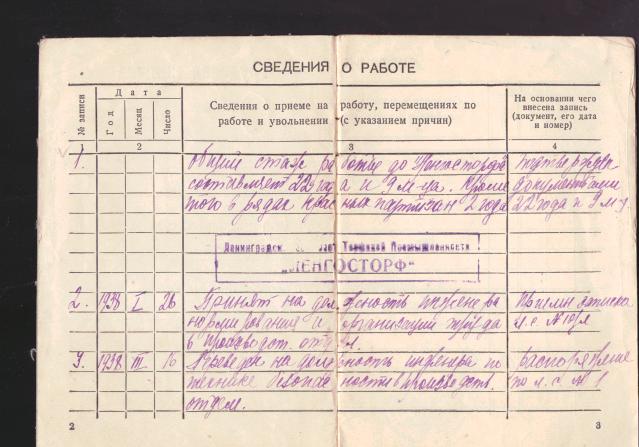 СВЕДЕНИЯ О РАБОТЕ
№ записи
Дата
Год
Месяц
Число
Сведения о приеме на работу, перемещениях по
работе и увольнении (с указанием причин)
На основании чего
внесена запись
(документ, его дата
и номер)
1 2 3 4
1. Общий стаж работы до Ленгосторфа
составляет 22 года и 9 м-ца. Кроме
того в рядах красных партизан 2 года
документами
22 года и 9 м-ц
Ленинградск. Торфяной Промышленности
„ЛЕНГОСТОРФ"
2. 1938 I 26 Принят на должность инженера
нормирования и организации труда
в производст. отдел.
записка
л.с. №
3. 1938 III 16 Переведен на должность инженера по
технике безопасности в производств.
отдел.
распоряжение
по л.с. № 1
2
3